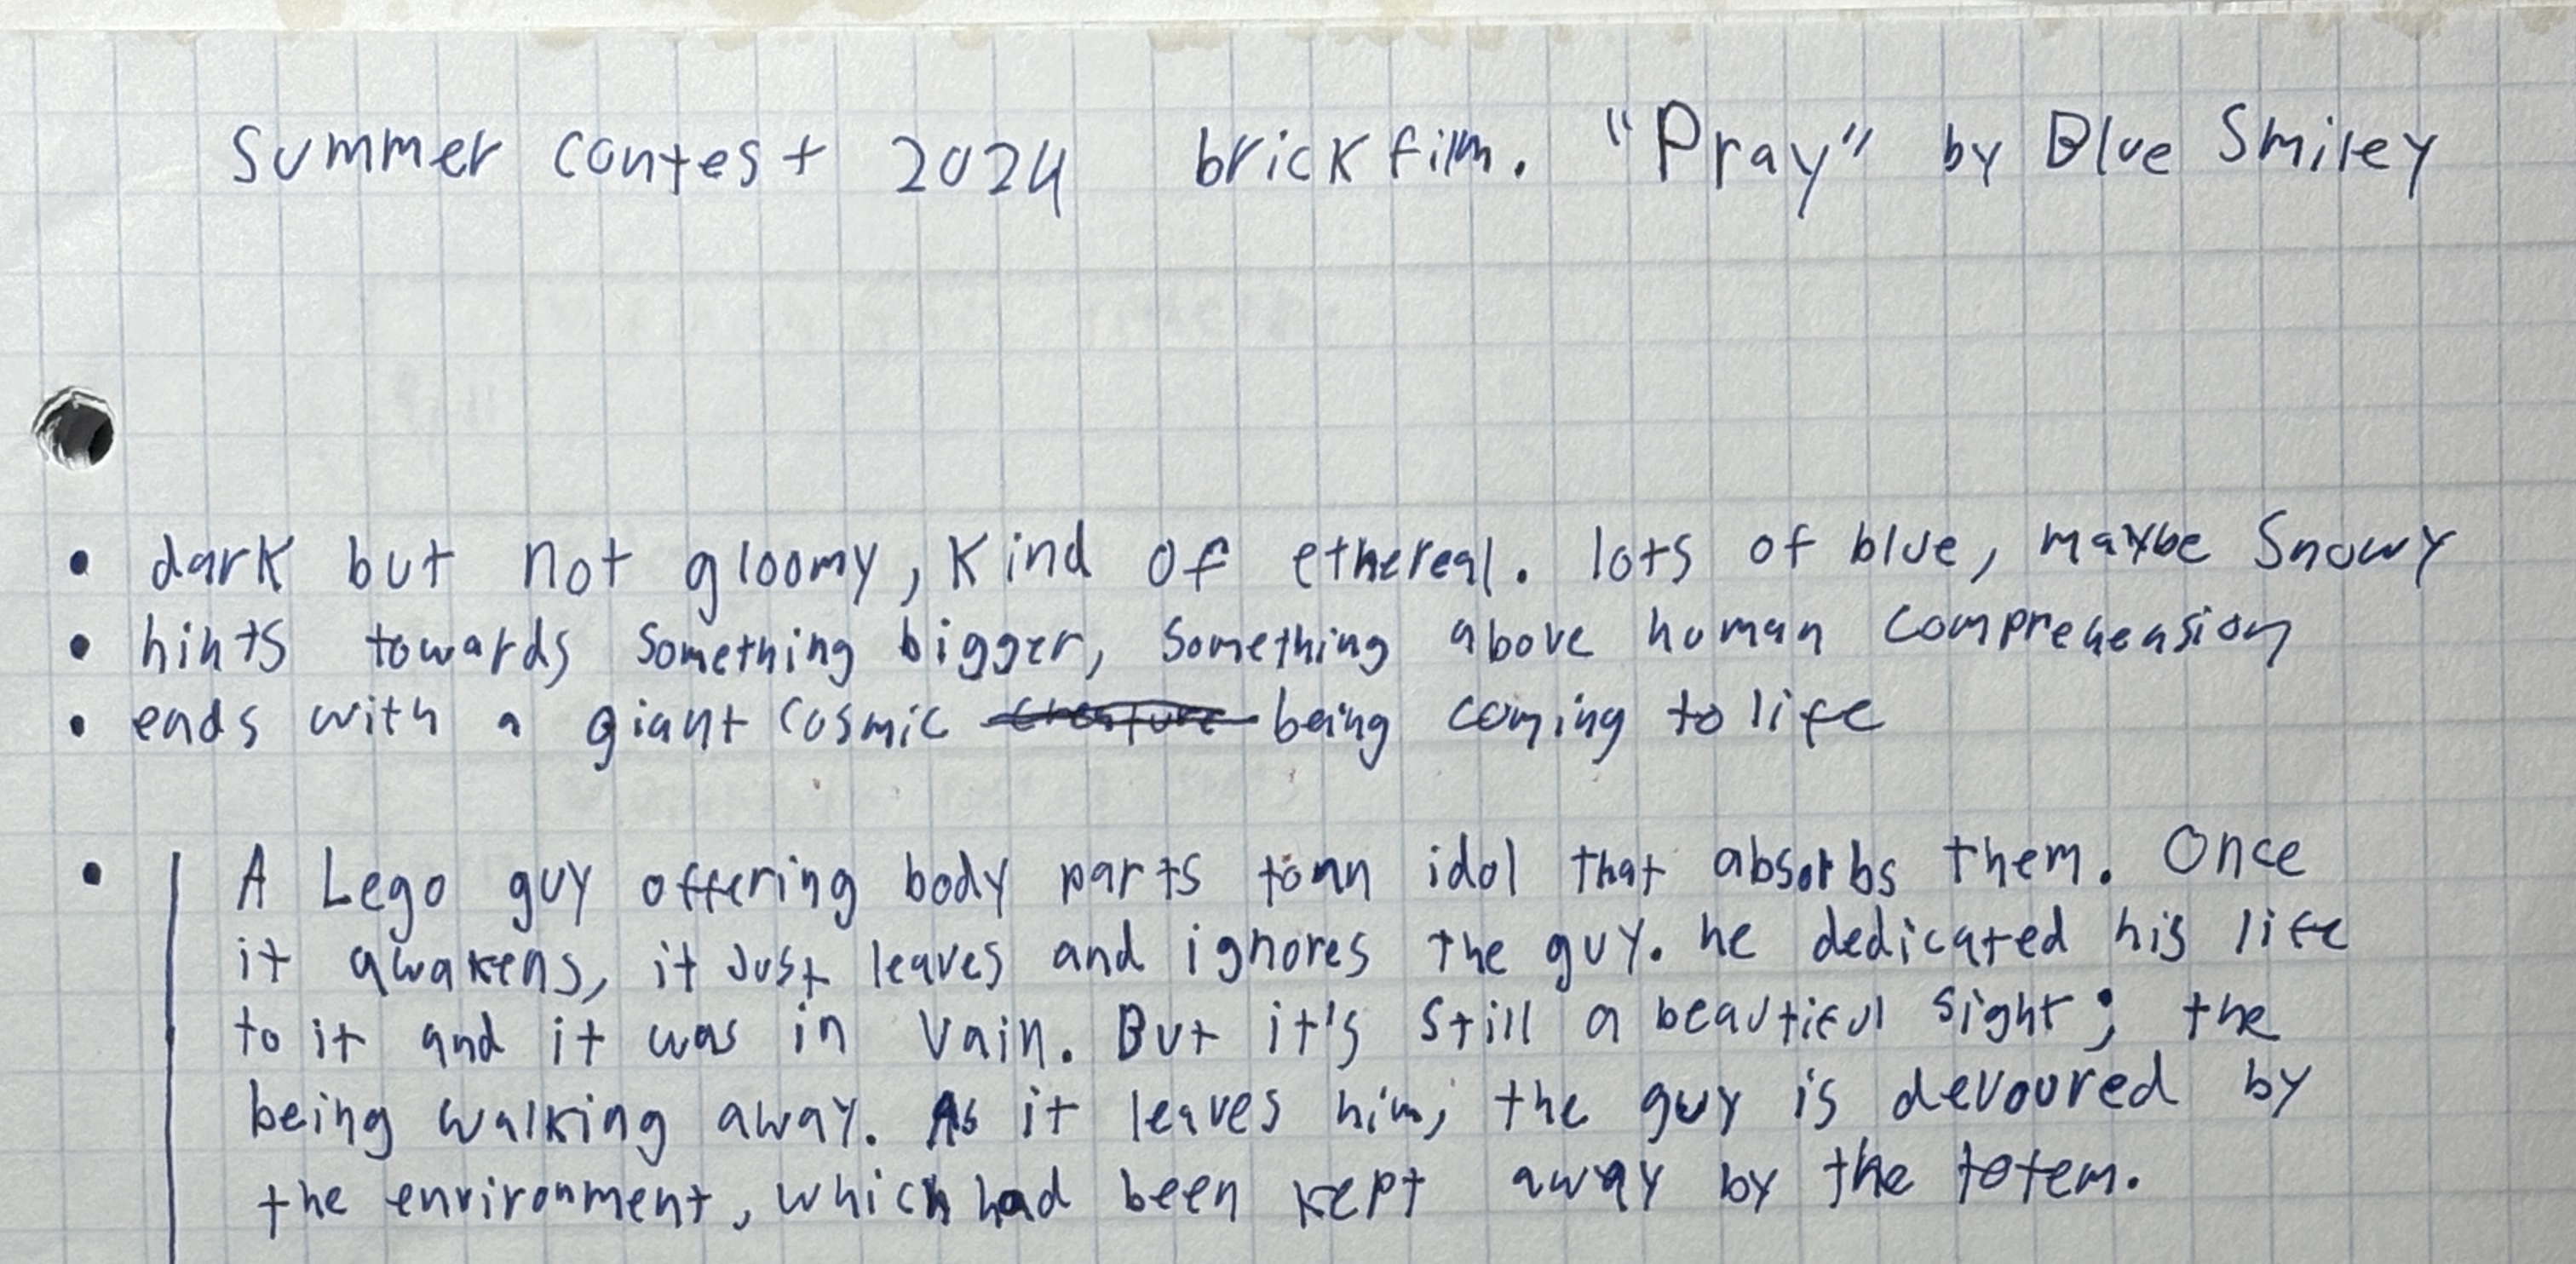 Summer contest 2024 brickfilm. "Pray" by Blue Smiley
• dark but not gloomy, kind of ethereal. lots of blue, maybe snowy
• hints towards something bigger, something above human comprehension
• ends with a giant cosmic creature being coming to life
• A Lego guy offering body parts to an idol that absorbs them. Once
it awakens, it just leaves and ignores the guy. he dedicated his life
to it and it was in vain. But it's still a beautiful sight; the
being walking away. As it leaves him, the guy is devoured by
the environment, which had been kept away by the totem.